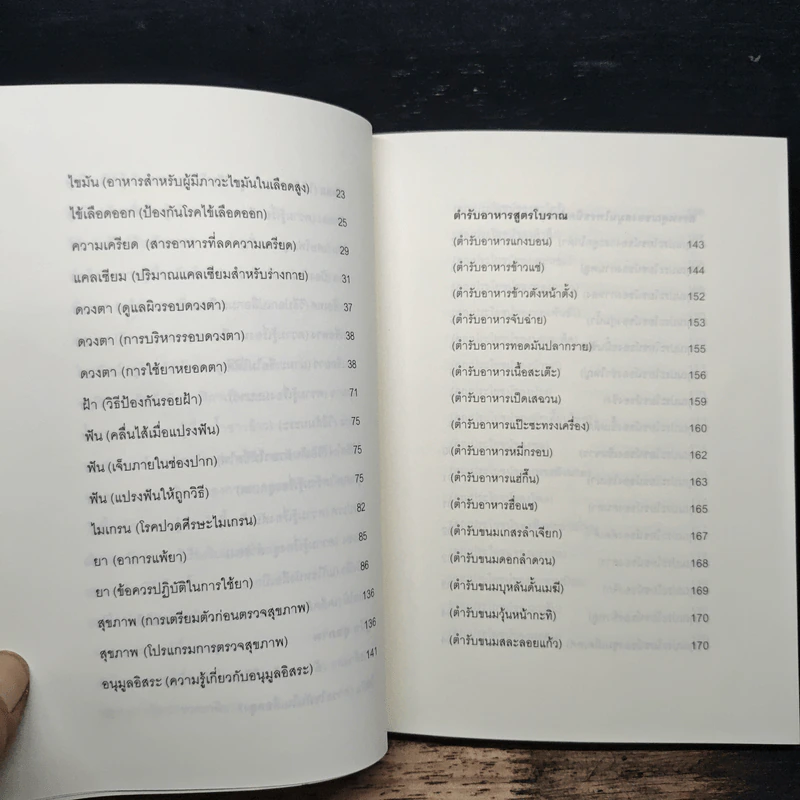 ไขมัน (อาหารสำหรับผู้มีภาวะไขมันในเลือดสูง) 23
ไข้เลือดออก (ป้องกันโรคไข้เลือดออก) 25
ความเครียด (สารอาหารที่ลดความเครียด) 29
แคลเซียม (ปริมาณแคลเซียมสำหรับร่างกาย) 31
ดวงตา (ดูแลผิวรอบดวงตา) 37
ดวงตา (การบริหารรอบดวงตา) 38
ดวงตา (การใช้ยาหยอดตา) 38
ฝ้า (วิธีป้องกันรอยฝ้า) 71
ฟัน (คลื่นไส้เมื่อแปรงฟัน) 75
ฟัน (เจ็บภายในช่องปาก) 75
ฟัน (แปรงฟันให้ถูกวิธี) 75
ไมเกรน (โรคปวดศีรษะไมเกรน) 82
ยา (อาการแพ้ยา) 85
ยา (ข้อควรปฏิบัติในการใช้ยา) 86
สุขภาพ (การเตรียมตัวก่อนตรวจสุขภาพ) 136
สุขภาพ (โปรแกรมการตรวจสุขภาพ) 136
อนุมูลอิสระ (ความรู้เกี่ยวกับอนุมูลอิสระ) 141
ตำรับอาหารสูตรโบราณ
(ตำรับอาหารแกงบอน) 143
(ตำรับอาหารข้าวแช่) 144
(ตำรับอาหารข้าวตังหน้าตั้ง) 152
(ตำรับอาหารจับฉ่าย) 153
(ตำรับอาหารทอดมันปลากราย) 155
(ตำรับอาหารเนื้อสะเต๊ะ) 156
(ตำรับอาหารเป็ดเสฉวน) 159
(ตำรับอาหารแป๊ะซะทรงเครื่อง) 160
(ตำรับอาหารหมี่กรอบ) 162
(ตำรับอาหารแฮ่กึ๊น) 163
(ตำรับอาหารฮื่อแซ) 165
(ตำรับขนมเกสรลำเจียก) 167
(ตำรับขนมดอกลำดวน) 168
(ตำรับขนมบุหลันดั้นเมฆี) 169
(ตำรับขนมวุ้นหน้ากะทิ) 170
(ตำรับขนมสละลอยแก้ว) 170